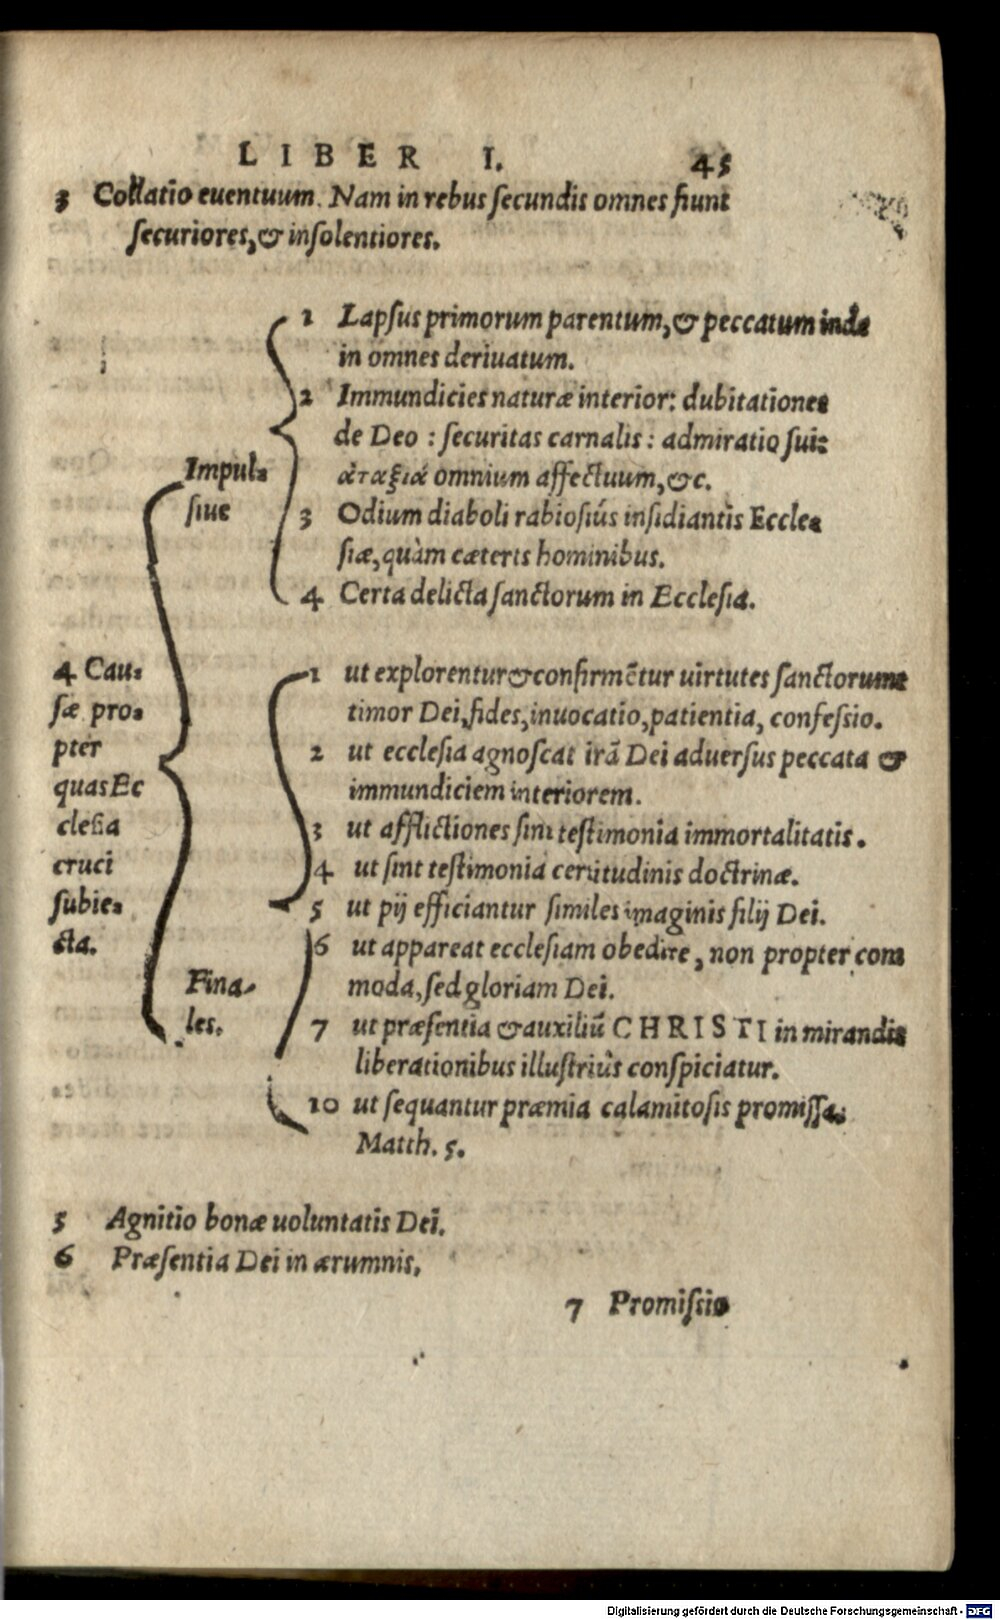 LIBER I. 45
3 Collatio euentuum. Nam in rebus ſecundis omnes fiunt
ſecuriores, & inſolentiores.
Impul-
ſiue
1 Lapſus primorum parentum, & peccatum inde
in omnes deriuatum.
2 Immundicies naturæ interior: dubitationes
de Deo : ſecuritas carnalis : admiratio ſui:
ἀταξιά omnium affectuum, &c.
3 Odium diaboli rabioſiús inſidiantis Eccle-
ſiæ, quàm cæteris hominibus.
4 Certa delicta ſanctorum in Eccleſia.
4 Cau-
ſæ pro-
pter
quas Ec
cleſia
cruci
ſubie-
cta.
Fina-
les.
1 ut explorentur & confirmẽtur uirtutes ſanctorum
timor Dei, fides, inuocatio, patientia, confeſſio.
2 ut eccleſia agnoſcat irã Dei aduerſus peccata &
immundiciem interiorem.
3 ut afflictiones ſint teſtimonia immortalitatis.
4 ut ſint teſtimonia certitudinis doctrinæ.
5 ut pij efficiantur ſimiles imaginis filij Dei.
6 ut appareat eccleſiam obedire, non propter com
moda, ſed gloriam Dei.
7 ut præſentia & auxiliũ CHRISTI in mirandis
liberationibus illuſtriùs conſpiciatur.
10 ut ſequantur præmia calamitoſis promiſſa:
Matth. 5.
5 Agnitio bonæ uoluntatis Dei.
6 Præſentia Dei in ærumnis.
7 Promiſcio
Digitalisierung gefördert durch die Deutsche Forschungsgemeinschaft - DFG